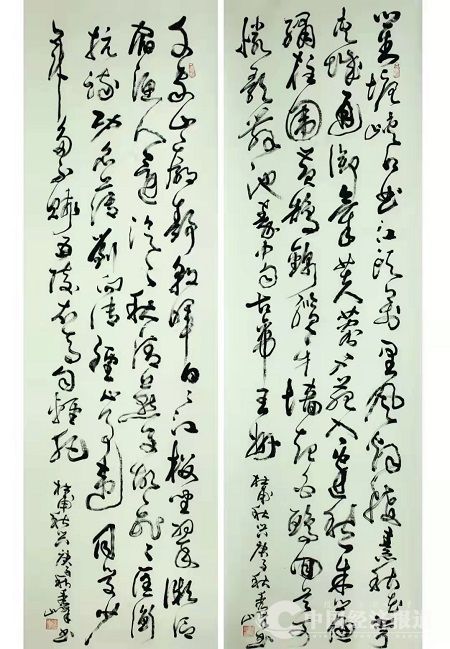 瞿塘峡口曲江头万里风烟接素秋花萼
夹城通御气芙蓉小苑入边愁珠帘
绣柱围黄鹄锦缆牙樯起白鸥回首可
怜歌舞地秦中自古帝王州
杜甫秋兴庚子秋书
千家山郭静朝晖日日江楼坐翠微信
宿渔人还泛泛清秋燕子故飞飞匡衡
抗疏功名薄刘向传经心事违同学少
年多不贱五陵衣马自轻肥
杜甫秋兴庚子秋书
中国经济报道